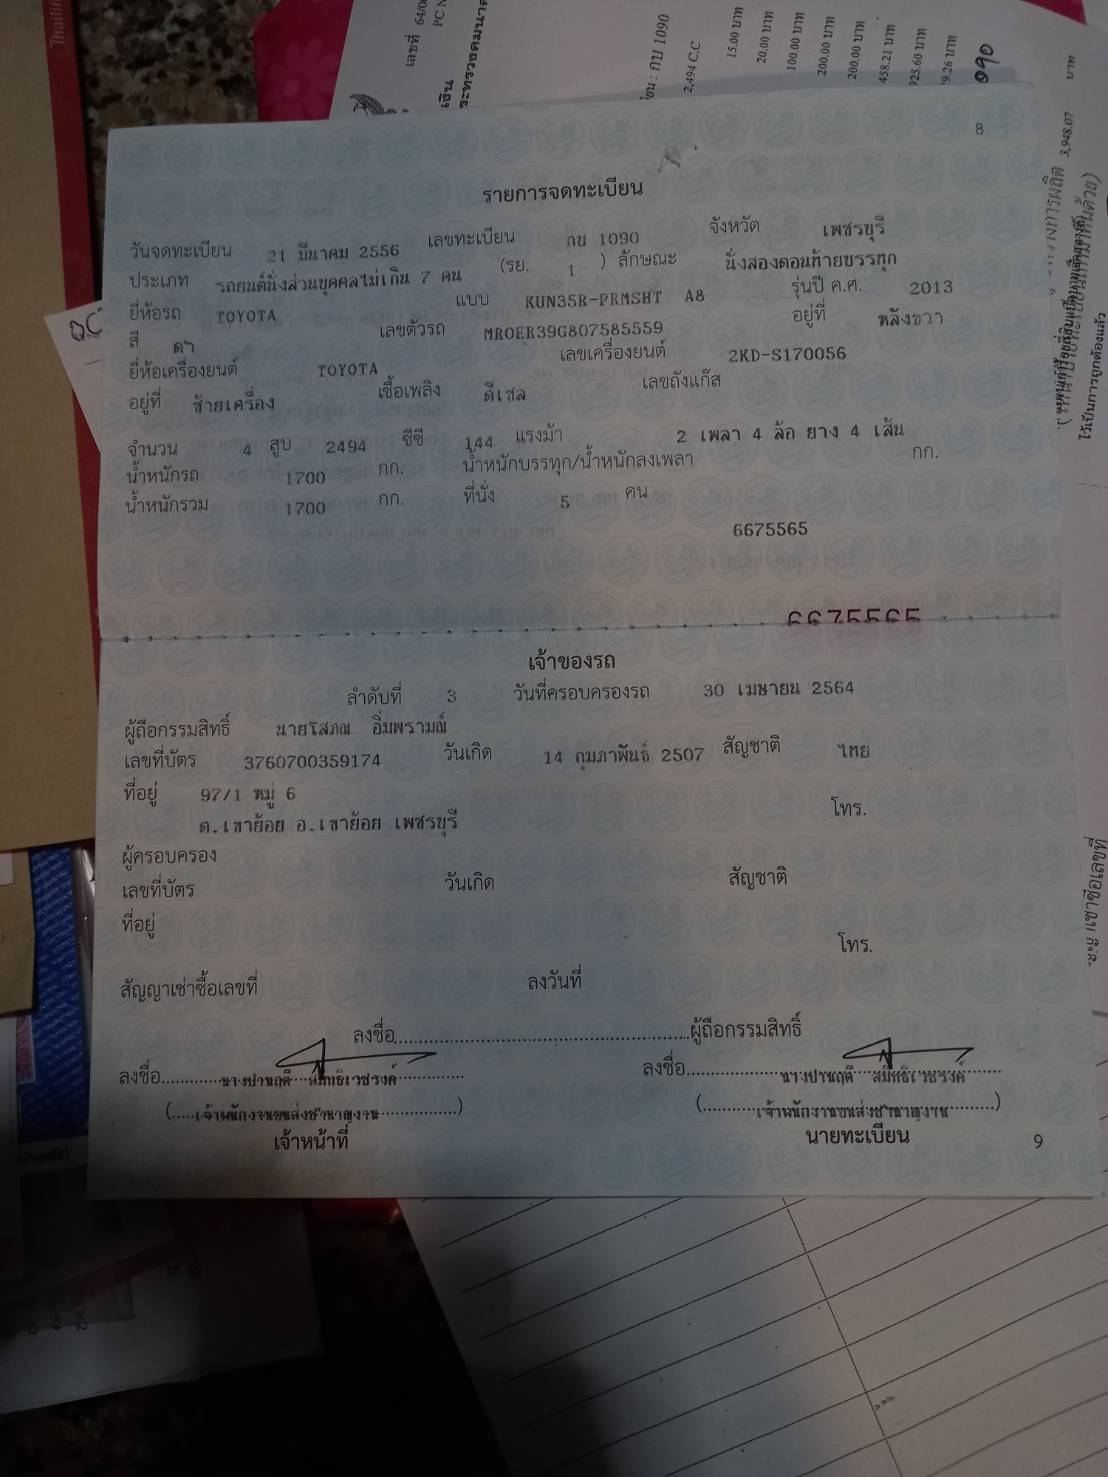 8
รายการจดทะเบียน
วันจดทะเบียน 21 มีนาคม 2556 เลขทะเบียน กบ 1090 จังหวัด เพชรบุรี
ประเภท รถยนต์นั่งส่วนบุคคลไม่เกิน 7 คน (รย. 1 ) ลักษณะ นั่งสองตอนท้ายบรรทุก
ยี่ห้อรถ TOYOTA แบบ KUN35R-PRMSHT A8 รุ่นปี ค.ศ. 2013
สี ดำ เลขตัวรถ MROER39G807585559 อยู่ที่ หลังขวา
ยี่ห้อเครื่องยนต์ TOYOTA เลขเครื่องยนต์ 2KD-S170056
อยู่ที่ ซ้ายเครื่อง เชื้อเพลิง ดีเซล เลขถังแก๊ส
จำนวน 4 สูบ 2494 ซีซี 144 แรงม้า 2 เพลา 4 ล้อ ยาง 4 เส้น
น้ำหนักรถ 1700 กก. น้ำหนักบรรทุก/น้ำหนักลงเพลา กก.
น้ำหนักรวม 1700 กก. ที่นั่ง 5 คน
6675565
6675565
เจ้าของรถ
ลำดับที่ 3 วันที่ครอบครองรถ 30 เมษายน 2564
ผู้ถือกรรมสิทธิ์ นายโสภณ อิ่มพรามณ์
เลขที่บัตร 3760700359174 วันเกิด 14 กุมภาพันธ์ 2507 สัญชาติ ไทย
ที่อยู่ 97/1 หมู่ 6
โทร.
ต.เขาย้อย อ.เขาย้อย เพชรบุรี
ผู้ครอบครอง
เลขที่บัตร วันเกิด สัญชาติ
ที่อยู่
โทร.
สัญญาเช่าซื้อเลขที่ ลงวันที่
ลงชื่อ ผู้ถือกรรมสิทธิ์
ลงชื่อ นางปานฤดี สมิทธิเวชรงค์ ลงชื่อ นางปานฤดี สมิทธิเวชรงค์
(เจ้าพนักงานขนส่งชำนาญงาน) (เจ้าพนักงานขนส่งชำนาญงาน)
เจ้าหน้าที่ นายทะเบียน
9
เลขที่ 64/0
เงิน
ระทรวงคมนาค
: กบ 1090
2,494 C.C
15.00 บาท
20.00 บาท
100.00 บาท
200.00 บาท
200.00 บาท
458.21 บาท
925.60 บาท
9.26 บาท
090
3,948.07 บาท